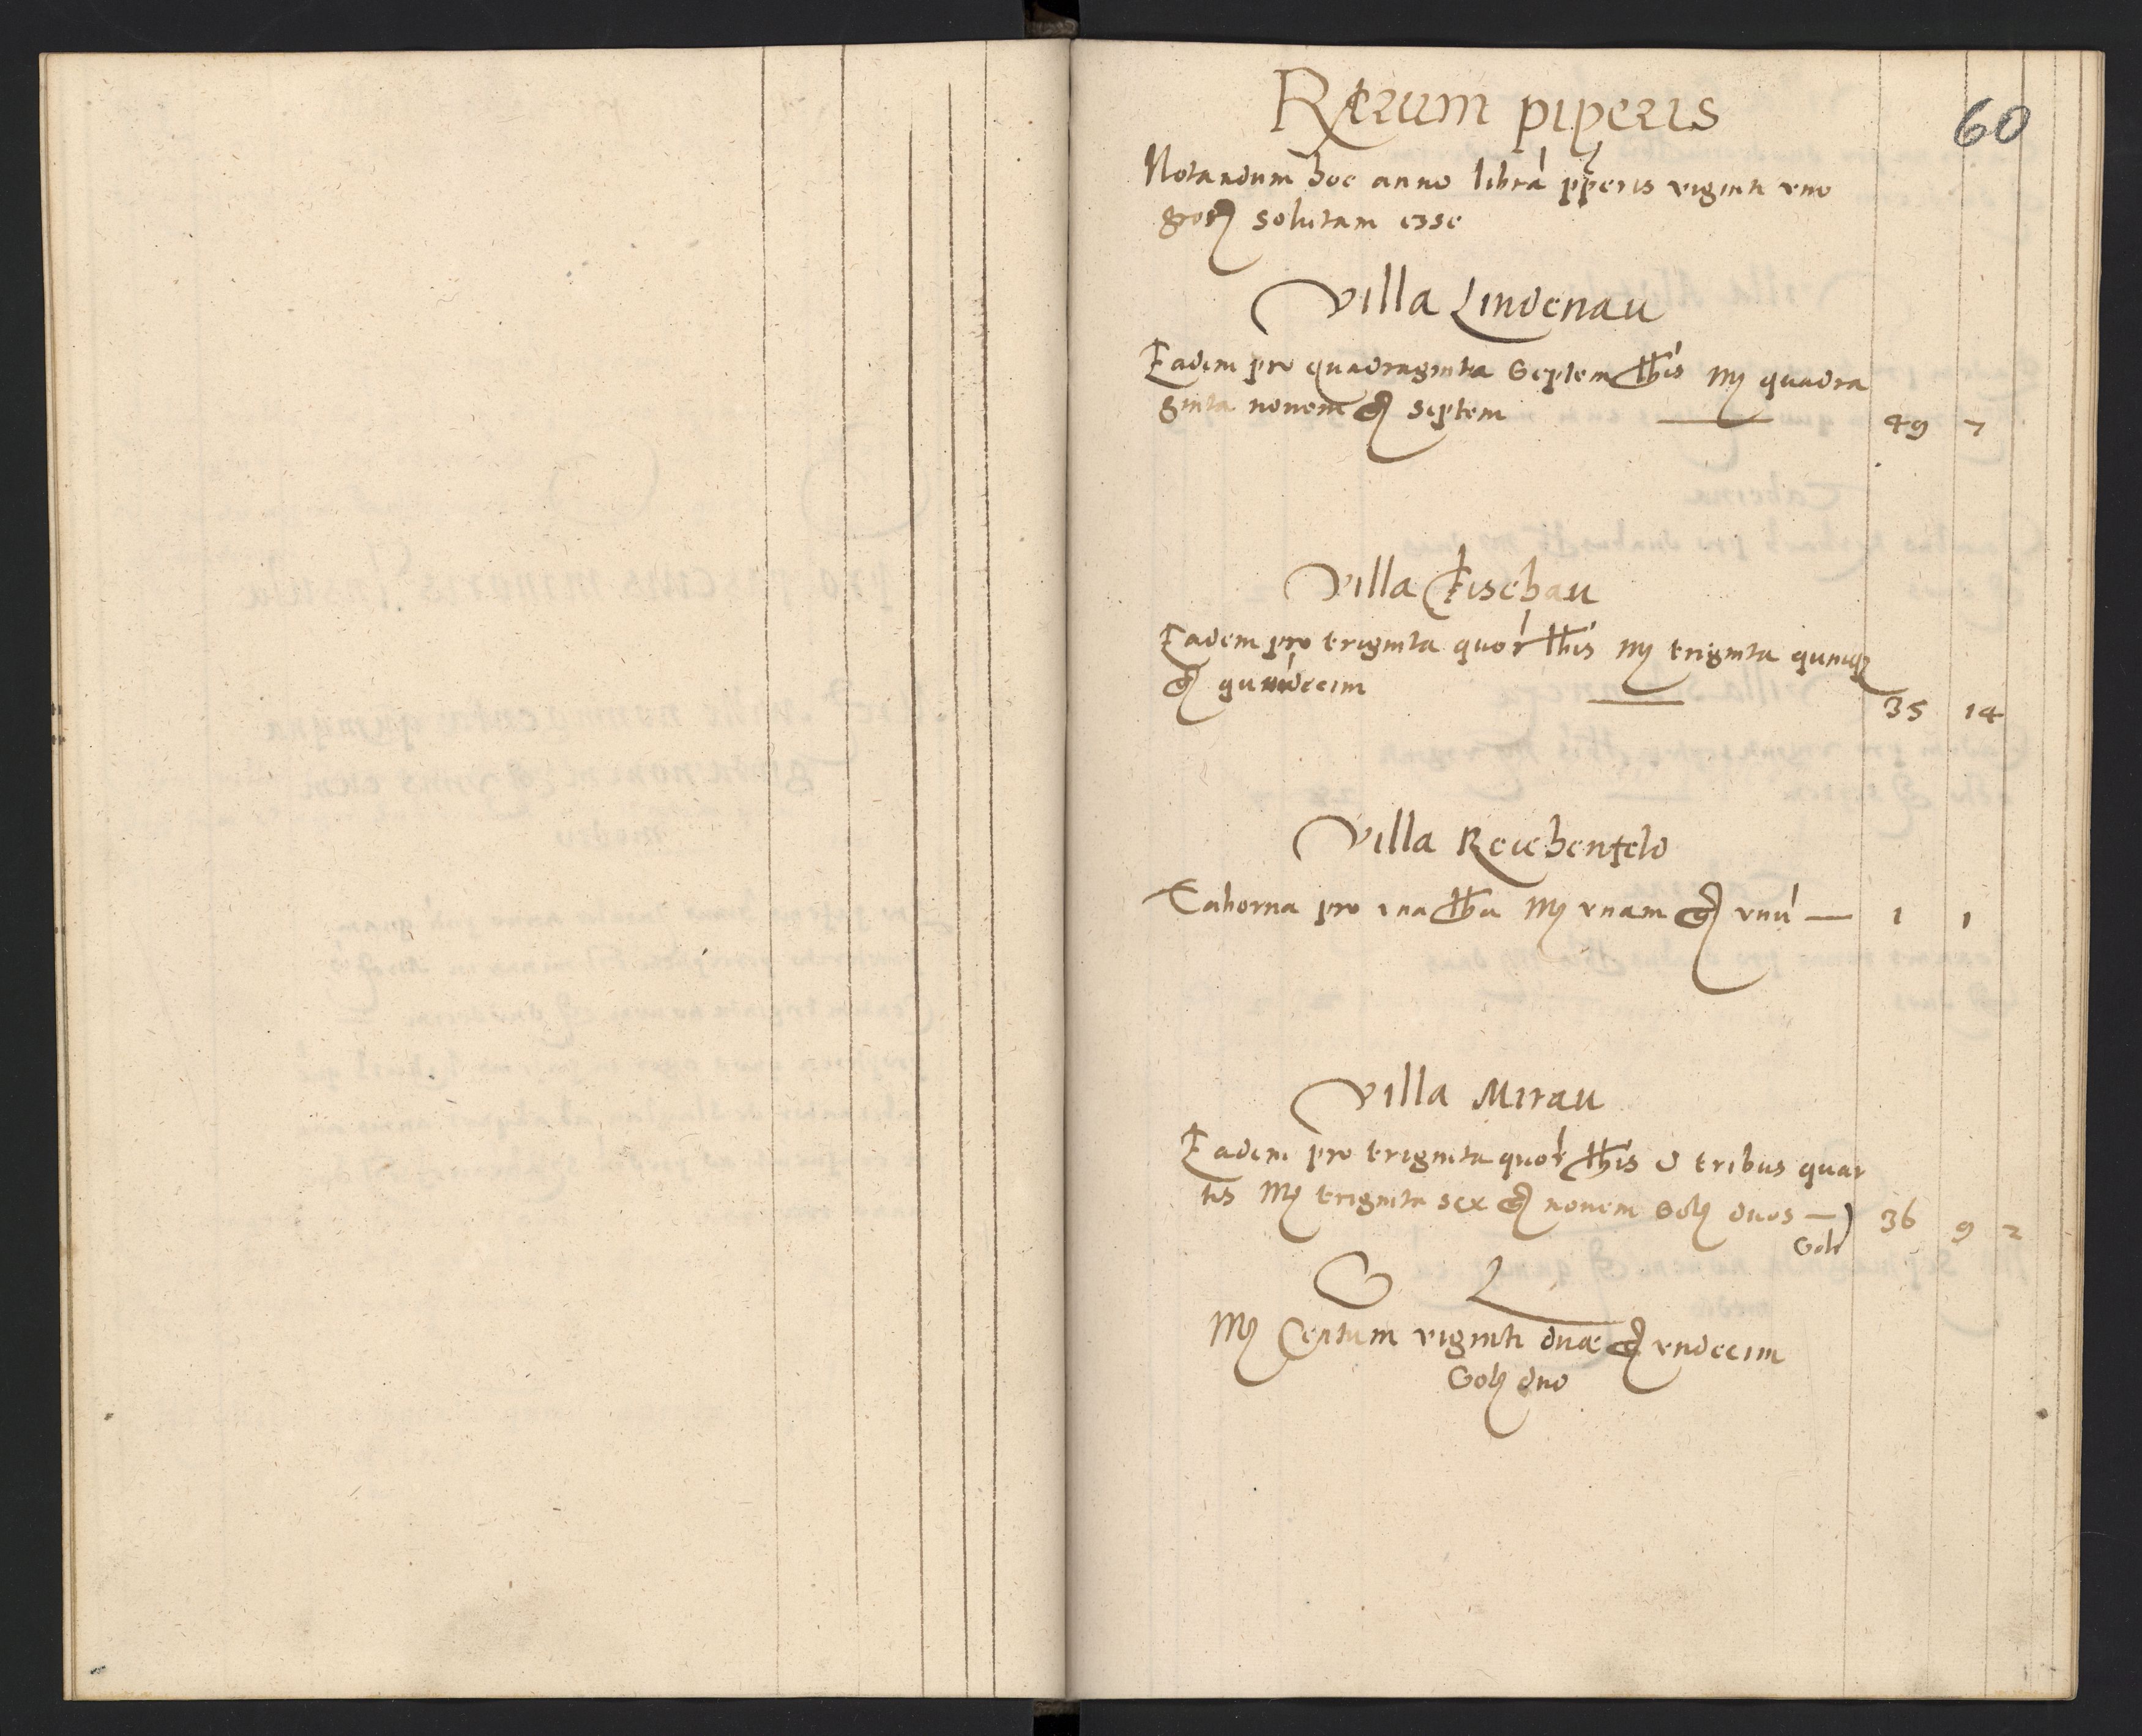 Rerum piperis
60
Notandum hoc anno librā pperis viginti vno
gross solutam esse
Villa Lindenau
Eadem pro quadraginta Septem lbis mr quadra
ginta novem g septem 49 7
Villa Fischau
Eadem pro triginta quor lbis mr triginta quinq
g quatuordecim 35 14
Villa Reichenfeld
Taberna pro vna lba mr vnam g vnū 1 1
Villa Mirau
Eadem pro triginta quor lbis & tribus quar
tis mr triginta sex g novem sol duos 36 9 2
Sol
S L
mr Centum viginti duae g vndecim
Sol duo